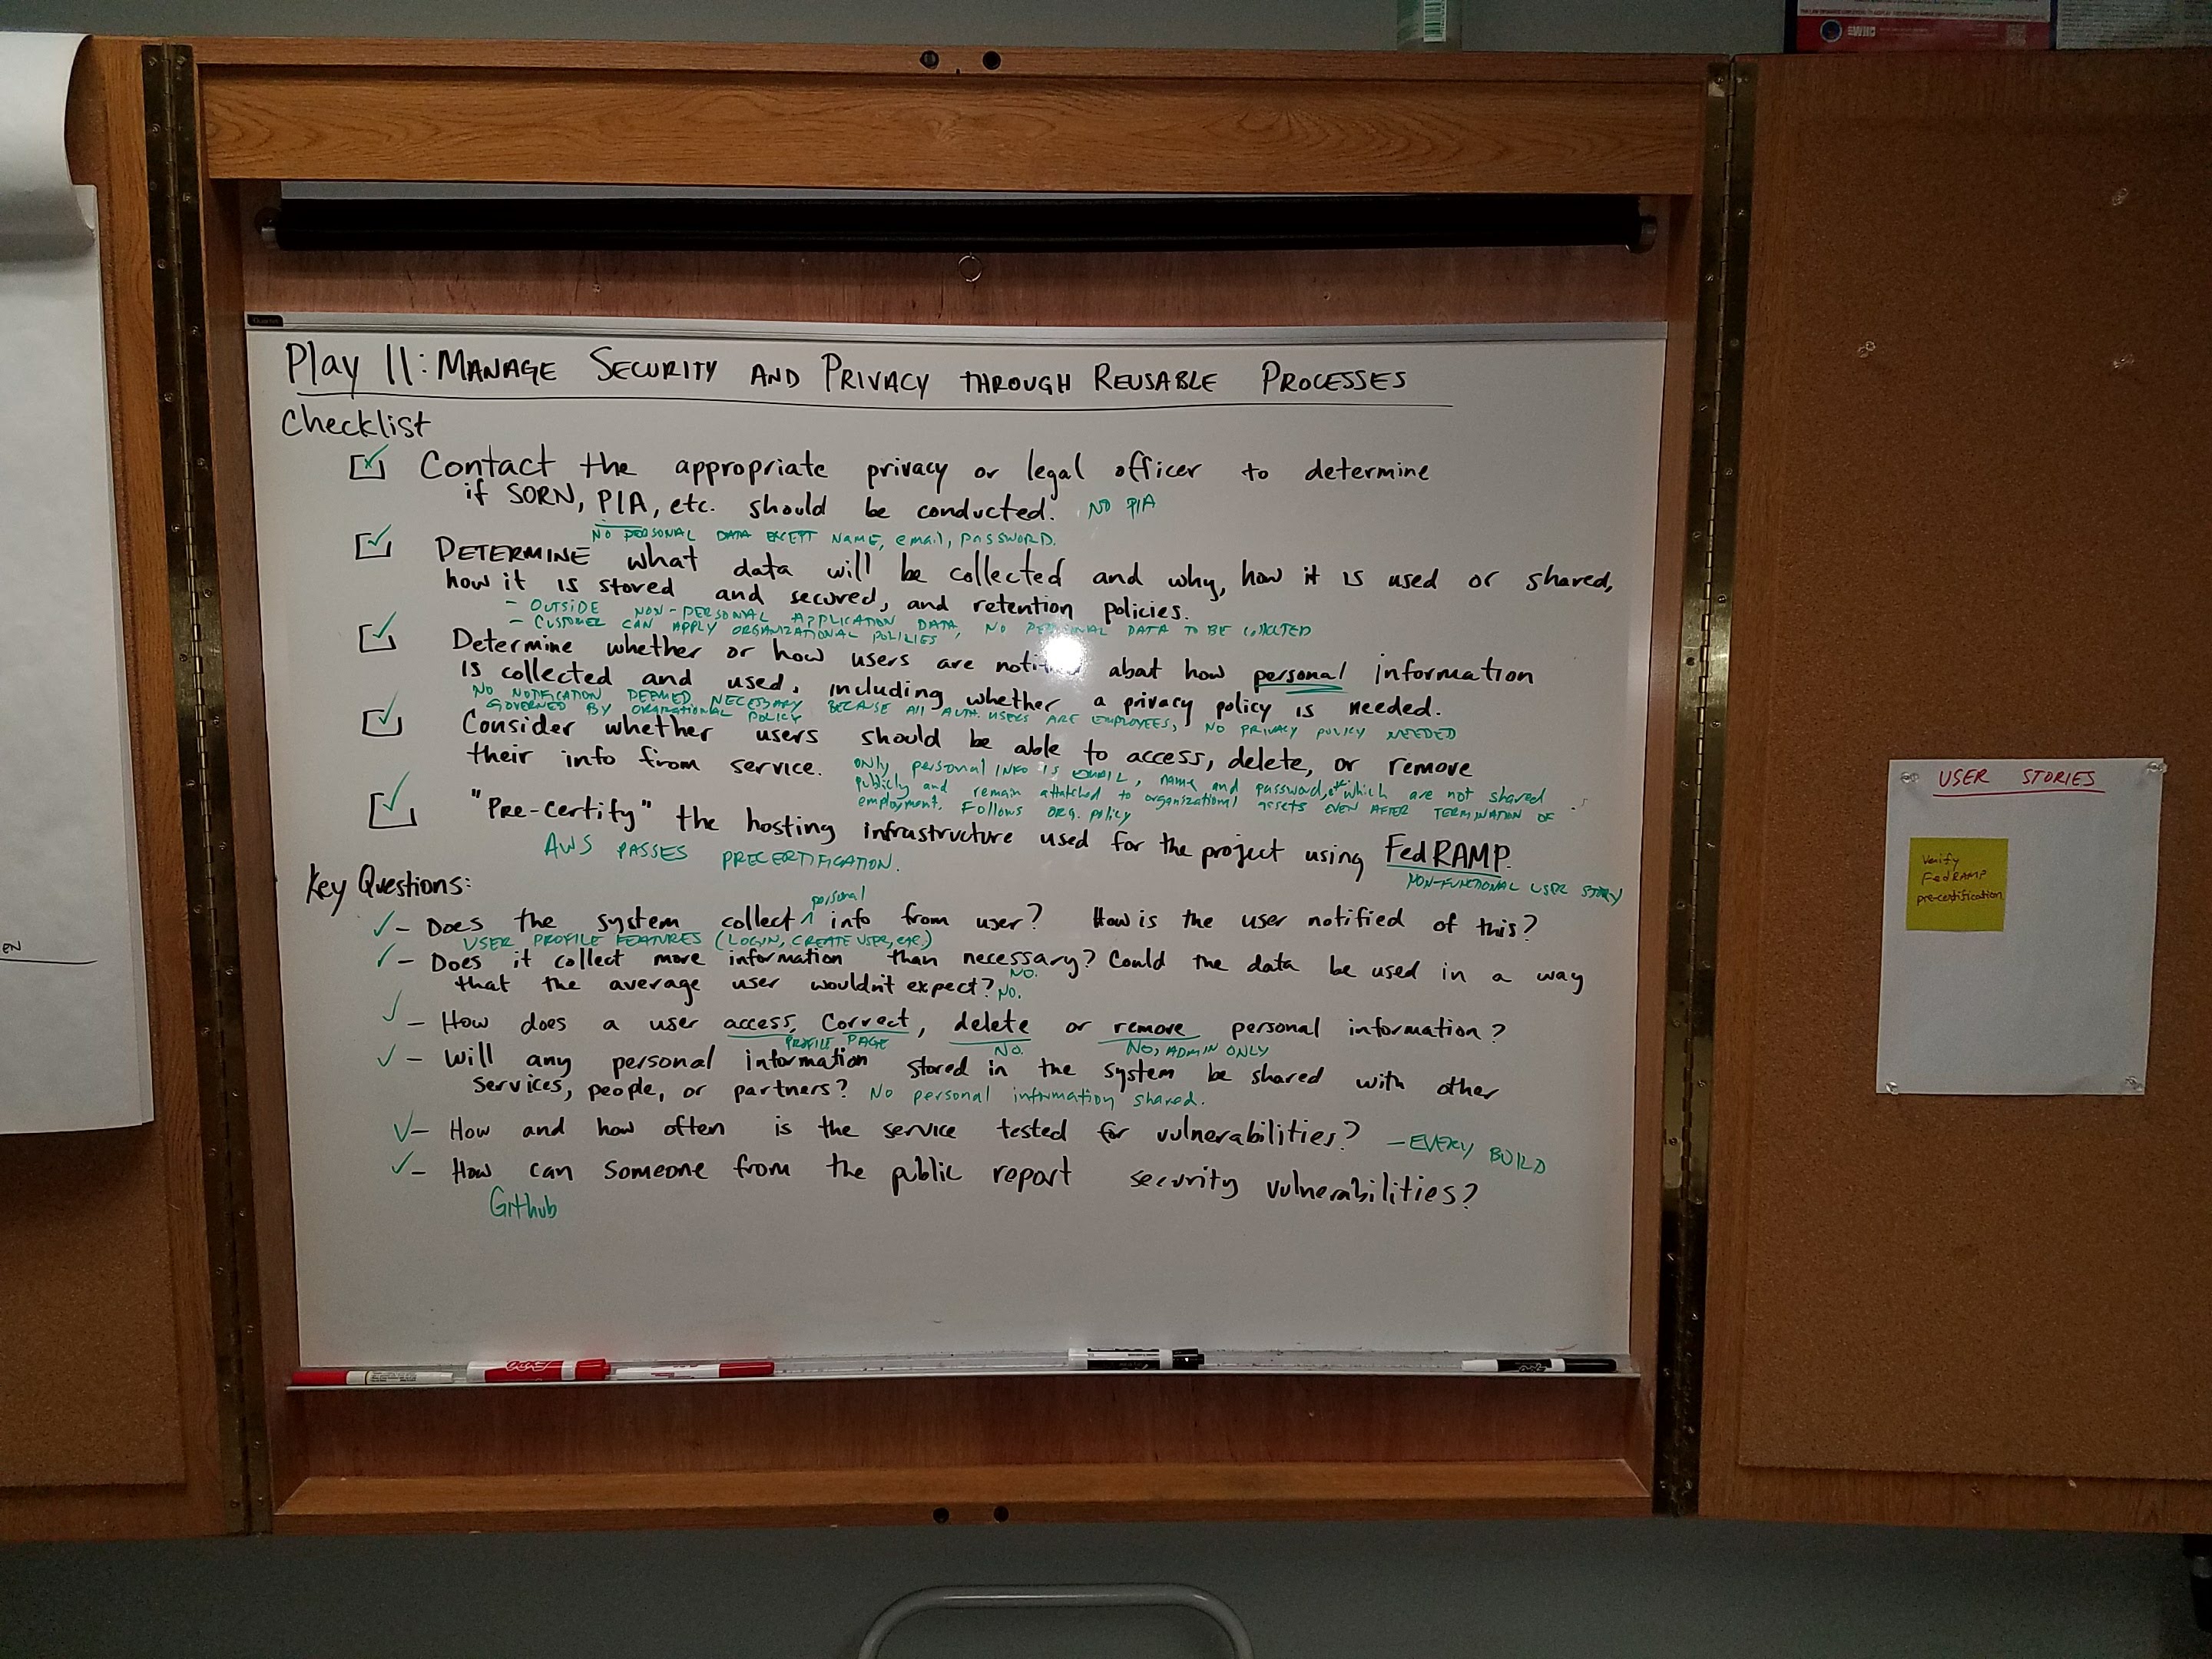 Play 11: MANAGE SECURITY AND PRIVACY THROUGH REUSABLE PROCESSES
Checklist
Contact the appropriate privacy or legal officer to determine
if SORN, PIA, etc. should be conducted. NO PIA
NO PERSONAL DATA EXCEPT NAME, email, PASSWORD.
DETERMINE what data will be collected and why, how it is used or shared,
how it is stored and secured, and retention policies.
- OUTSIDE NON-PERSONAL APPLICATION DATA, NO PERSONAL DATA TO BE COLLECTED
- CUSTOMER CAN APPLY ORGANIZATIONAL POLICIES
Determine whether or how users are notified about how personal information
is collected and used, including whether a privacy policy is needed.
NO NOTIFICATION DEEMED NECESSARY BECAUSE All AUTH. USERS ARE EMPLOYEES, NO PRIVACY POLICY NEEDED
GOVERNED BY ORGANIZATIONAL POLICY
Consider whether users should be able to access, delete, or remove
their info from service.
ONLY personal INFO IS EMAIL, name and password, of which are not shared
publicly and remain attatched to organizational assets EVEN AFTER TERMINATION OF
employment. Follows ORG. Policy
"Pre-Certify" the hosting infrastructure used for the project using FedRAMP.
AWS PASSES PRECERTIFICATION.
NON-FUNCTIONAL USER STORY
Key Questions:
- Does the system collect ^ personal info from user? How is the user notified of this?
USER PROFILE FEATURES (LOGIN, CREATE USER, etc.)
- Does it collect more information than necessary? NO. Could the data be used in a way
that the average user wouldn't expect? NO.
- How does a user access, Correct, delete or remove personal information?
PROFILE PAGE NO. NO, ADMIN ONLY
- Will any personal information stored in the system be shared with other
services, people, or partners? No personal information shared.
- How and how often is the service tested for vulnerabilities? - EVERY BUILD
- How can someone from the public report security vulnerabilities?
Github
USER STORIES
Verify
FedRAMP
pre-certification
EN